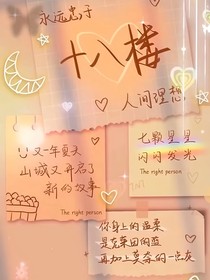 永远忠于
十八楼
人间理想
又一年夏天
山城又开启了
新的故事
The right person
七颗星星
闪闪发光
The right person
你身上的温柔
是花草团的茴
再加上莫奈的一点灰